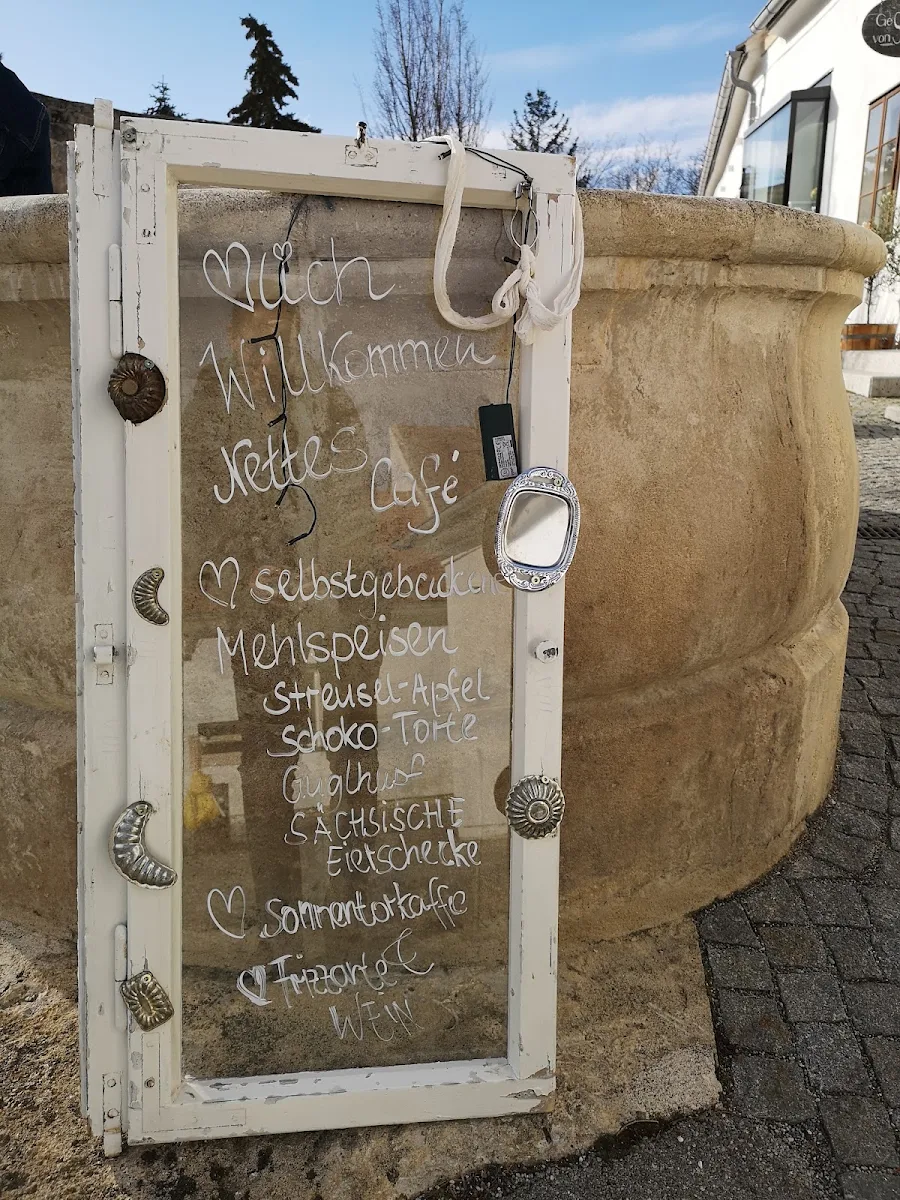 ♡lich
Willkommen
Nettes
Café
♡ selbstgebackene
Mehlspeisen
Streusel-Apfel
Schoko-Torte
Guglhuf
SÄCHSISCHE
Eierschecke
♡ Sonnentorkaffee
♡
WEIN
Ge
von